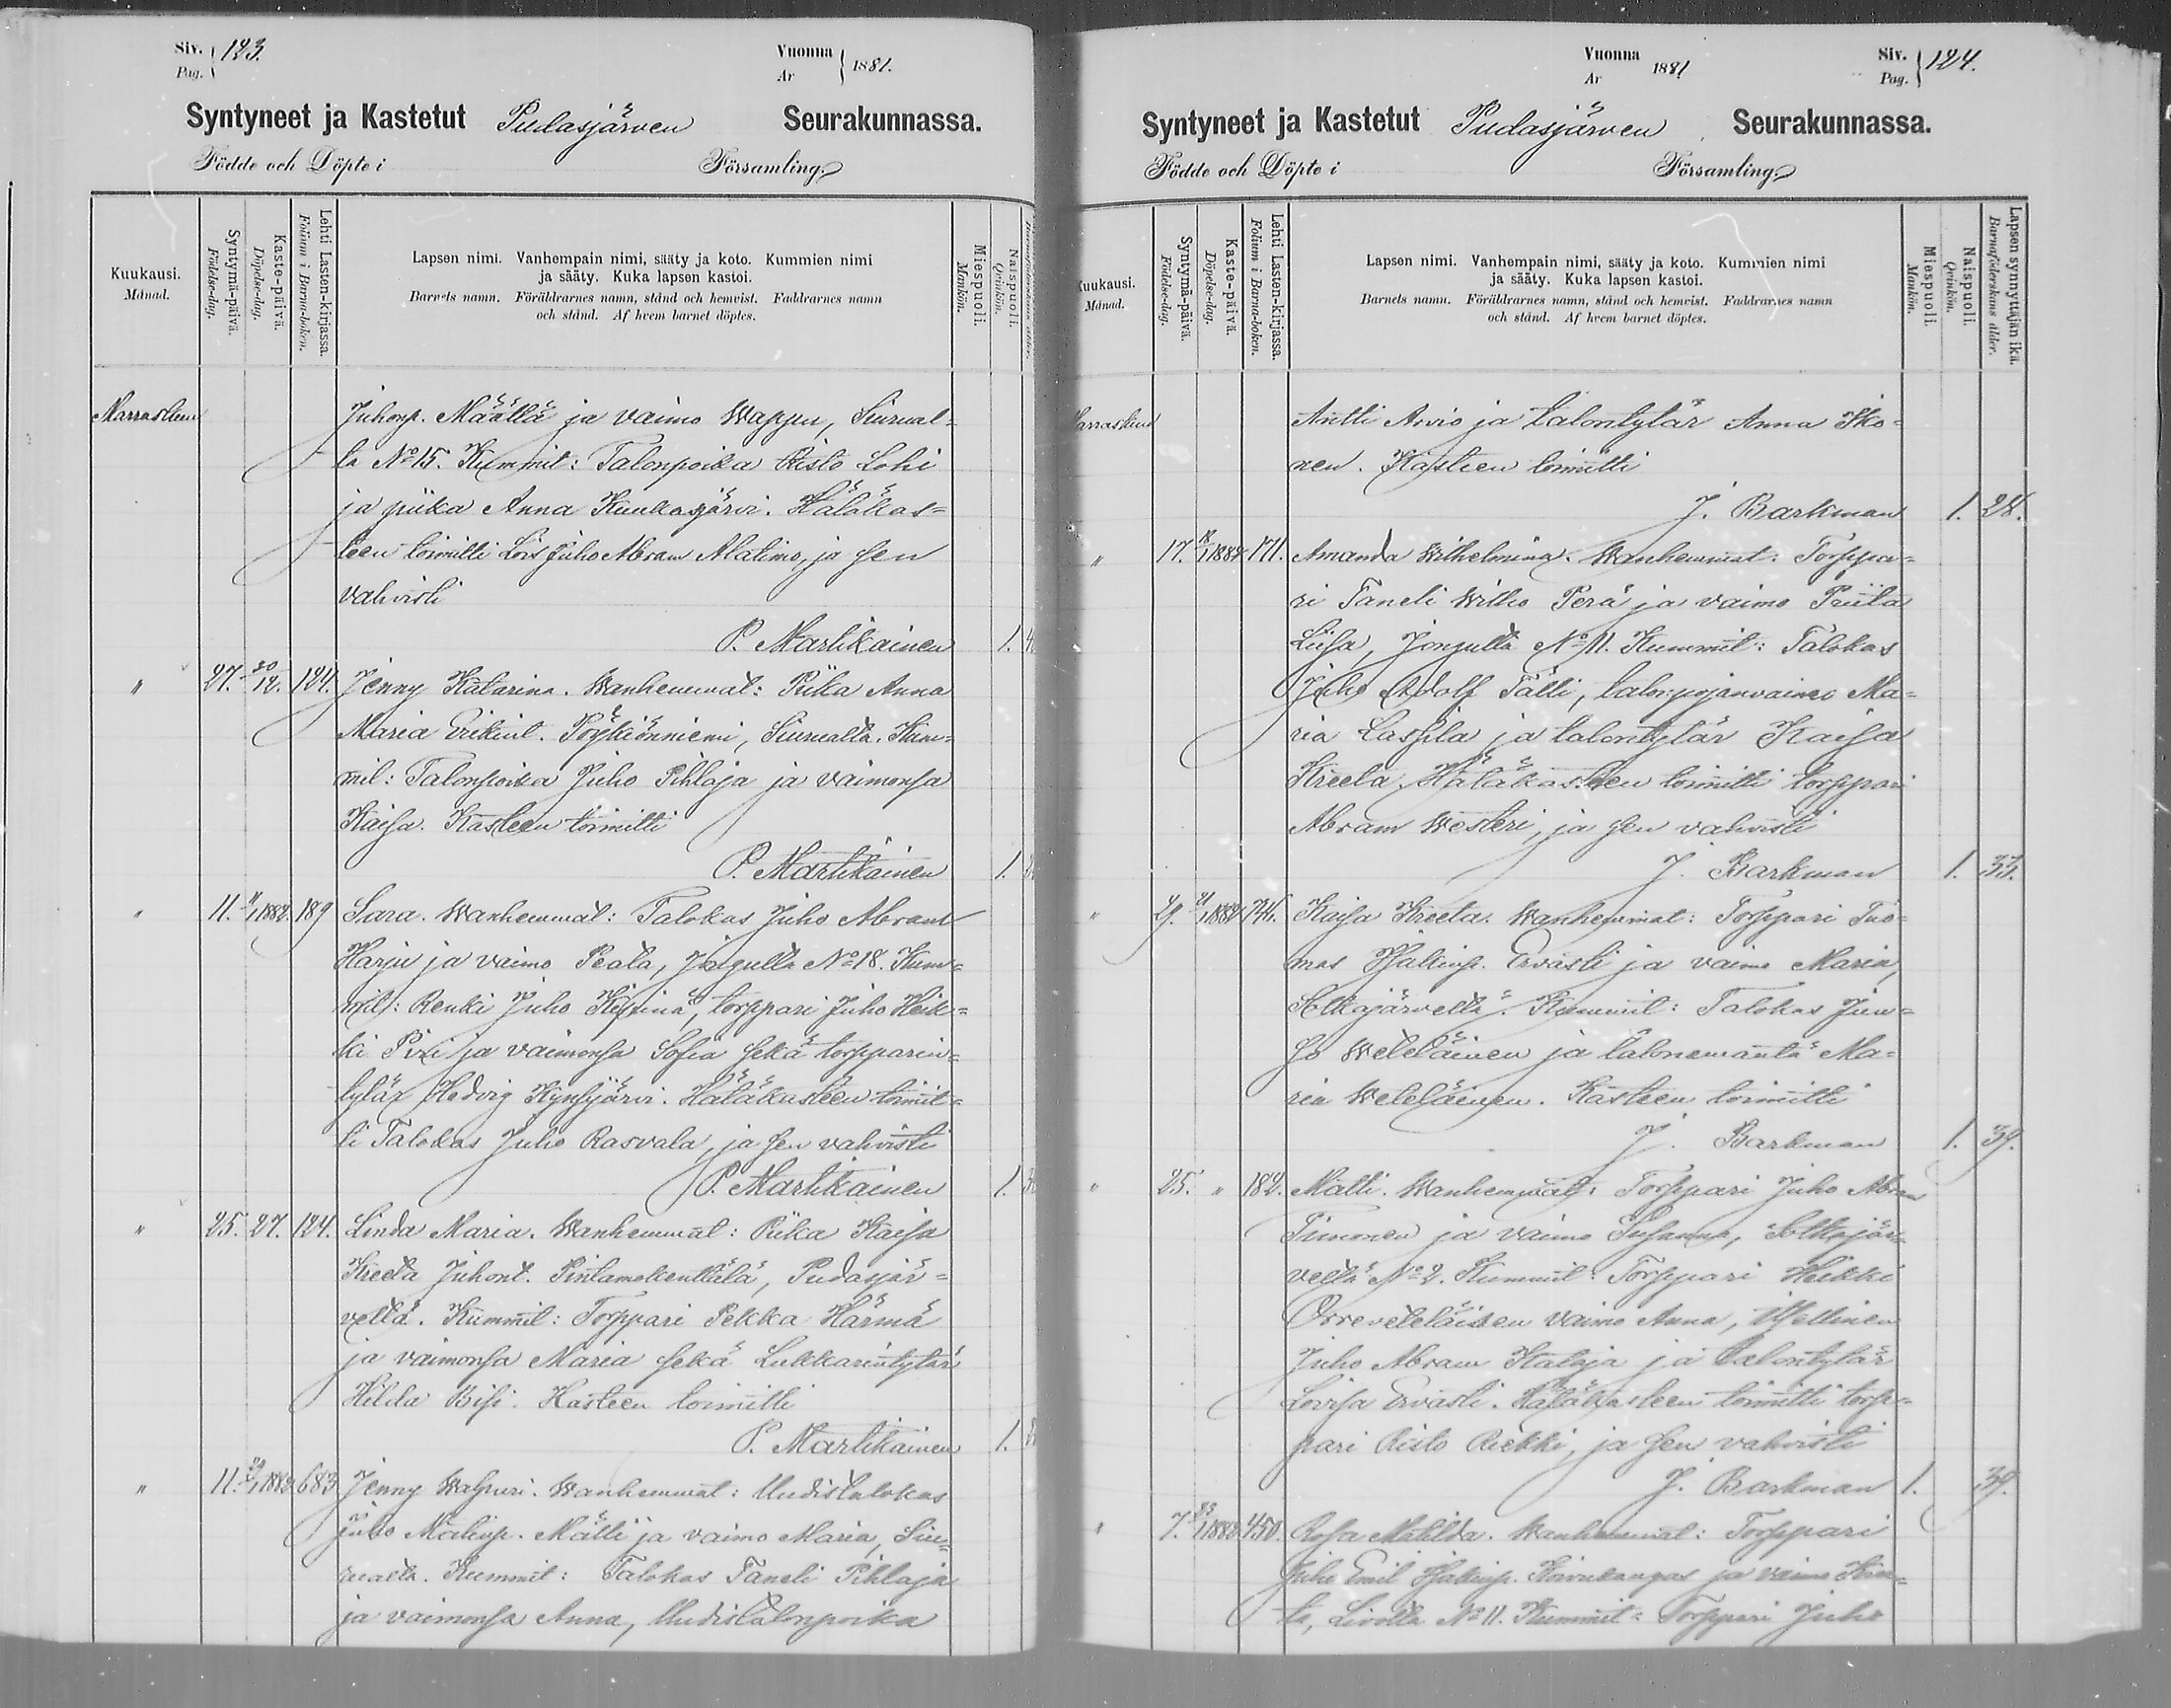 Siv. Pag. 123.
Vuonna Ar 1881.
Syntyneet ja Kastetut Pudasjärven Seurakunnassa.
Födde och Döpte i Församling.
Kuukausi. Månad.
Syntymä-päivä. Födelse-dag.
Kaste-päivä. Döpelse-dag.
Lehti Lasten-kirjassa. Folium i Barna-boken.
Lapsen nimi. Vanhempain nimi, sääty ja koto. Kummien nimi
ja sääty. Kuka lapsen kastoi.
Barnets namn. Föräldrarnes namn, stånd och hemvist. Faddrarnes namn
och stånd. Af hvem barnet döptes.
Miespuoli. Mankön.
Naispuoli. Qvinkön.
Marraskuu Juhonp. Määttä ja vaimo Wappu, Siurual-
ta No 15. Kummit: Talonpoika Risto Lohi
ja piika Anna Kuukasjärvi. Hätäkas-
teen toimitti Lois Juho Abram Alatimo, ja sen
vahvisti
P. Martikainen 1.
" 27. 30/12. 124. Jenny Katarina. Wanhemmat: Piika Anna
Maria Erikint. Pöykiönniemi, Siurualta. Kum-
mit: Talonpoika Juho Pihlaja ja vaimonsa
Kaisa. Kasteen toimitti
P. Martikainen 1.
" 11. 1882. 189 Sara. Wanhemmat: Talokas Juho Abram
Harju ja vaimo Peata, Jongulta No 18. Kum-
mit: Renki Juho Kipinä, torppari Juho Heik-
ki Piri ja vaimonsa Sofia sekä torpparin-
tytär Hedvig Kynsijärvi. Hätäkasteen toimit-
ti Talokas Juho Rasvala, ja sen vahvisti
P. Martikainen 1.
" 25. 27. 124. Linda Maria. Wanhemmat: Piika Kaisa
Kreeta Juhont. Pintamokenttälä, Pudasjär-
veltä. Kummit: Torppari Pekka Härmä
ja vaimonsa Maria sekä Lukkarintytär
Hilda Bisi. Kasteen toimitti
P. Martikainen 1.
" 11. 1882 683 Jenny Walpuri. Wanhemmat: Uudistalokas
Juho Matinp. Mätti ja vaimo Maria, Siu-
rualta. Kummit: Talokas Taneli Pihlaja
ja vaimonsa Anna, Uudistalonpoika
Vuonna Ar 1881
Siv. Pag. 124.
Syntyneet ja Kastetut Pudasjärven Seurakunnassa.
Födde och Döpte i Församling.
Kuukausi. Månad.
Syntymä-päivä. Födelse-dag.
Kaste-päivä. Döpelse-dag.
Lehti Lasten-kirjassa. Folium i Barna-boken.
Lapsen nimi. Vanhempain nimi, sääty ja koto. Kummien nimi
ja sääty. Kuka lapsen kastoi.
Barnets namn. Föräldrarnes namn, stånd och hemvist. Faddrarnes namn
och stånd. Af hvem barnet döptes.
Miespuoli. Mankön.
Naispuoli. Qvinkön.
Lapsen synnyttäjän ikä. Barnaföderskans ålder.
Marraskuu Antti Arvio ja talontytär Anna Iko-
nen. Kasteen toimitti
J. Barkman 1. 28.
" 17. 18/1 1882 171. Amanda Wilhelmina. Wanhemmat: Torppa-
ri Taneli Wilho Perä ja vaimo Priita
Liisa, Jongulta No 11. Kummit: Talokas
Juho Adolf Tälli, talonpojanvaimo Ma-
ria Laspla ja talontytär Kaisa
Kreeta. Hätäkasteen toimitti torppari
Abram Westeri, ja sen vahvisti
J. Barkman 1. 33.
" 29. 1882 746. Kaisa Kreeta. Wanhemmat: Torppari Tuo-
mas Iisakinp. Ervasti ja vaimo Maria,
Sotkajärveltä. Kummit: Talokas Jun-
so Weteläinen ja talonemäntä Ma-
ria Weteläinen. Kasteen toimitti
J. Barkman 1. 39.
" 25. " 182. Matti. Wanhemmat: Torppari Juho Abram
Timonen ja vaimo Susanna, Sotkajär-
veltä No 2. Kummit: Torppari Heikki
Orreveteläisen vaimo Anna, itsellinen
Juho Abram Kataja ja talontytär
Lovisa Ervasti. Hätäkasteen toimitti torp-
pari Risto Riekki, ja sen vahvisti
J. Barkman 1. 39.
" 7. 23/1 1882 450. Rosa Matilda. Wanhemmat: Torppari
Juho Emil Iisakinp. Koivukangas ja vaimo Kree-
ta, Livolta No 11. Kummit: Torppari Juho